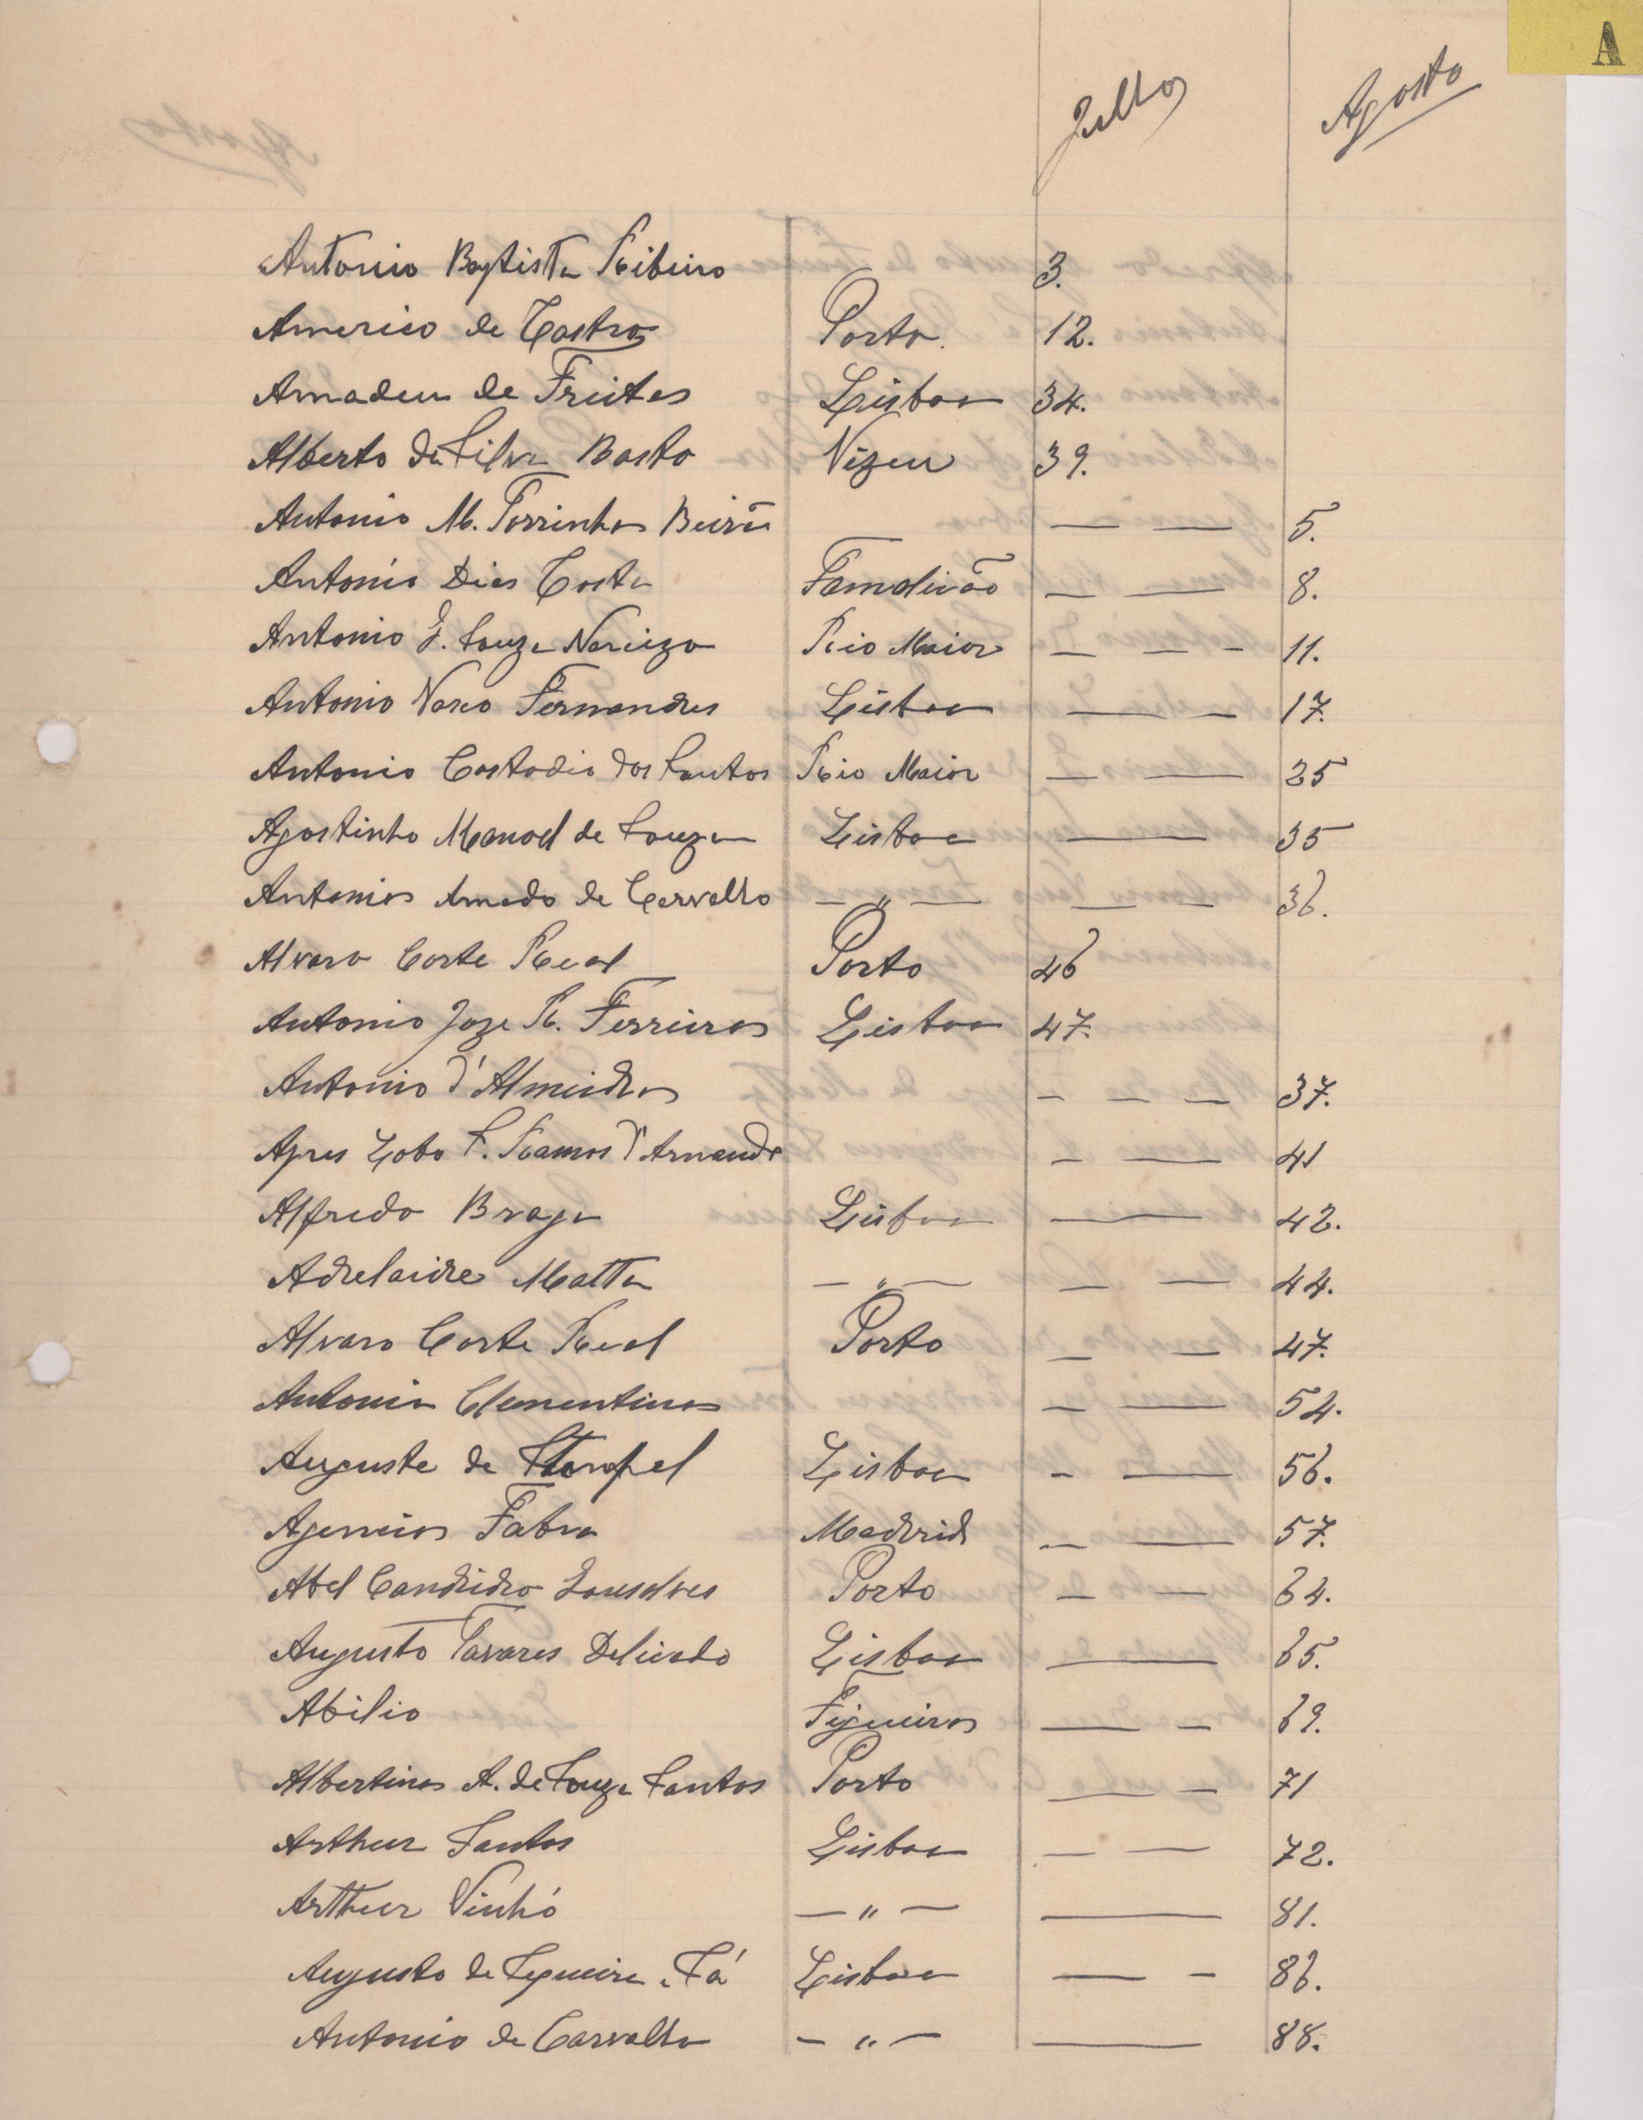 A
Julho Agosto
Antonio Baptista Ribeiro 3.
Americo de Castro Porto. 12.
Amadeu de Freitas Lisboa 34.
Alberto da Silva Basto Vizeu 39.
Antonio M. Torrinha Beirão — — 5.
Antonio Dias Costa Famalicão — — 8.
Antonio J. Souza Narcizo Rio Maior — — - 11.
Antonio Vasco Fernandes Lisboa — — 17.
Antonio Custodio dos Santos Rio Maior — — 25
Agostinho Manoel de Souza Lisboa — 35
Antonio Amado de Carvalho — " — — — 36.
Alvaro Corte Real Porto 46
Antonio Joze R. Ferreira Lisboa 47.
Antonio d'Almeida - - — 37.
Lobo S. Ramos d' - — 41
Alfredo Braga Lisboa — 42.
Adelaide Matta — " — — — 44.
Alvaro Corte Real Porto — — 47.
Antonia Clementina — — 54.
Auguste de Lisboa - — 56.
Agencia Fabra Madrid — — 57.
Abel Candido Gonsalves Porto — — 64.
Augusto Tavares Delicado Lisboa — 65.
Abilio Figueira — — 69.
Albertina A. de Souza Santos Porto — — 71
Arthur Santos Lisboa — — 72.
Arthur Vinhó — " — — 81.
Augusto de Sequeira Sá Lisboa — - 86.
Antonio de Carvalho — " — — 88.